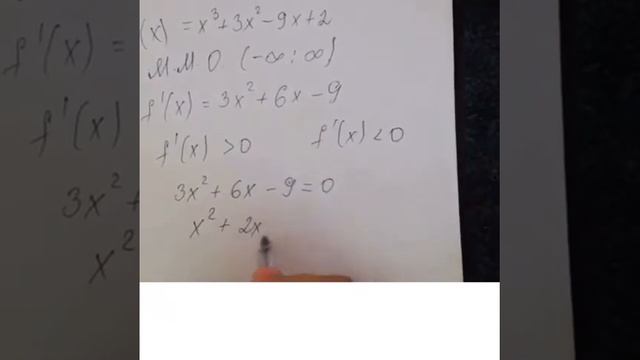 (x) = x³+3x²-9x+2
M.M.O (-∞; ∞)
f'(x) = 3x²+6x-9
f'(x) >0 f'(x) <0
3x²+6x-9=0
x²+2x